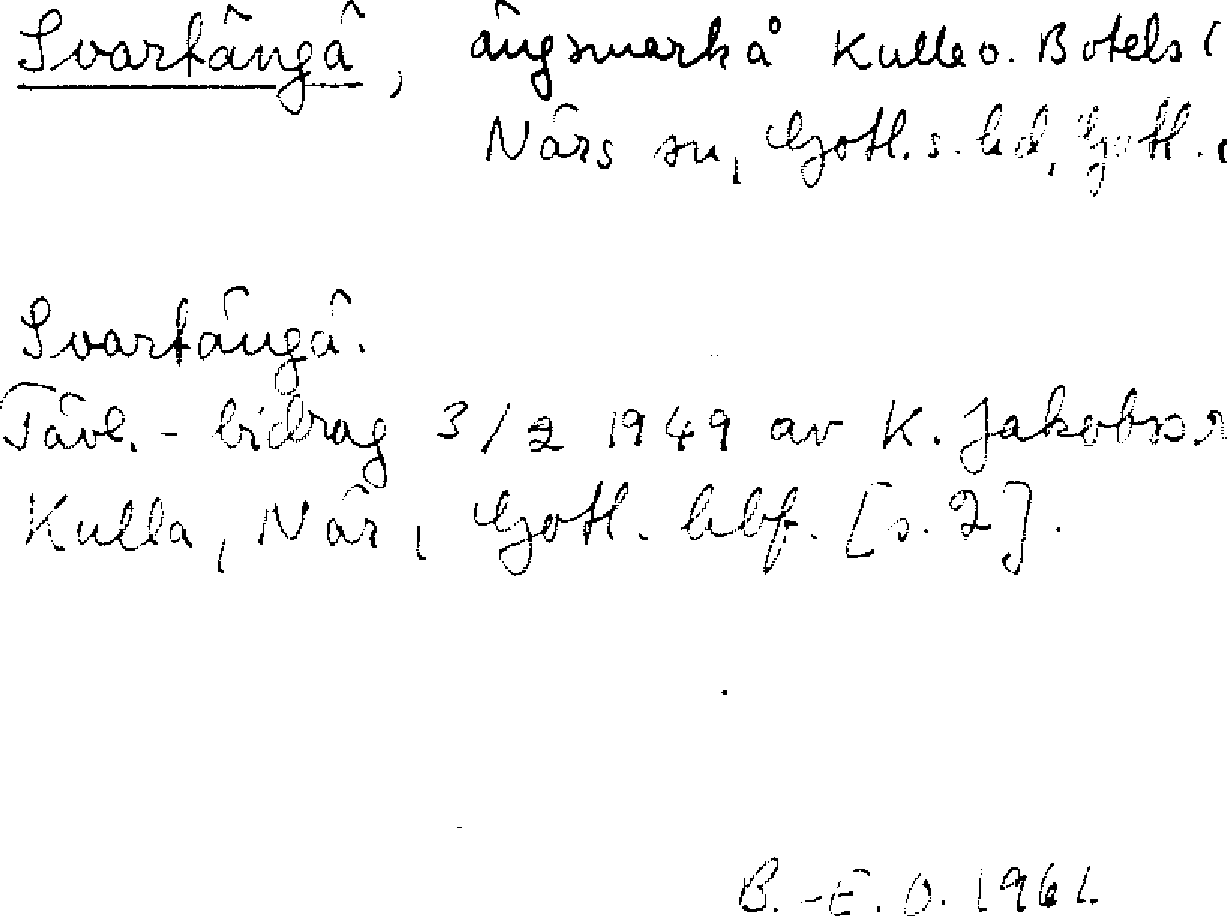 Svartängä, ängsmark å Kulle o. Botels i
Närs sn, Gotl. s. hd, Gotl.
Svartängä.
Tävl. - bidrag 3/2 1949 av K. Jakobsson
Kulla, När, Gotl. hbf. [s. 2].
B.-E. O. 1961.